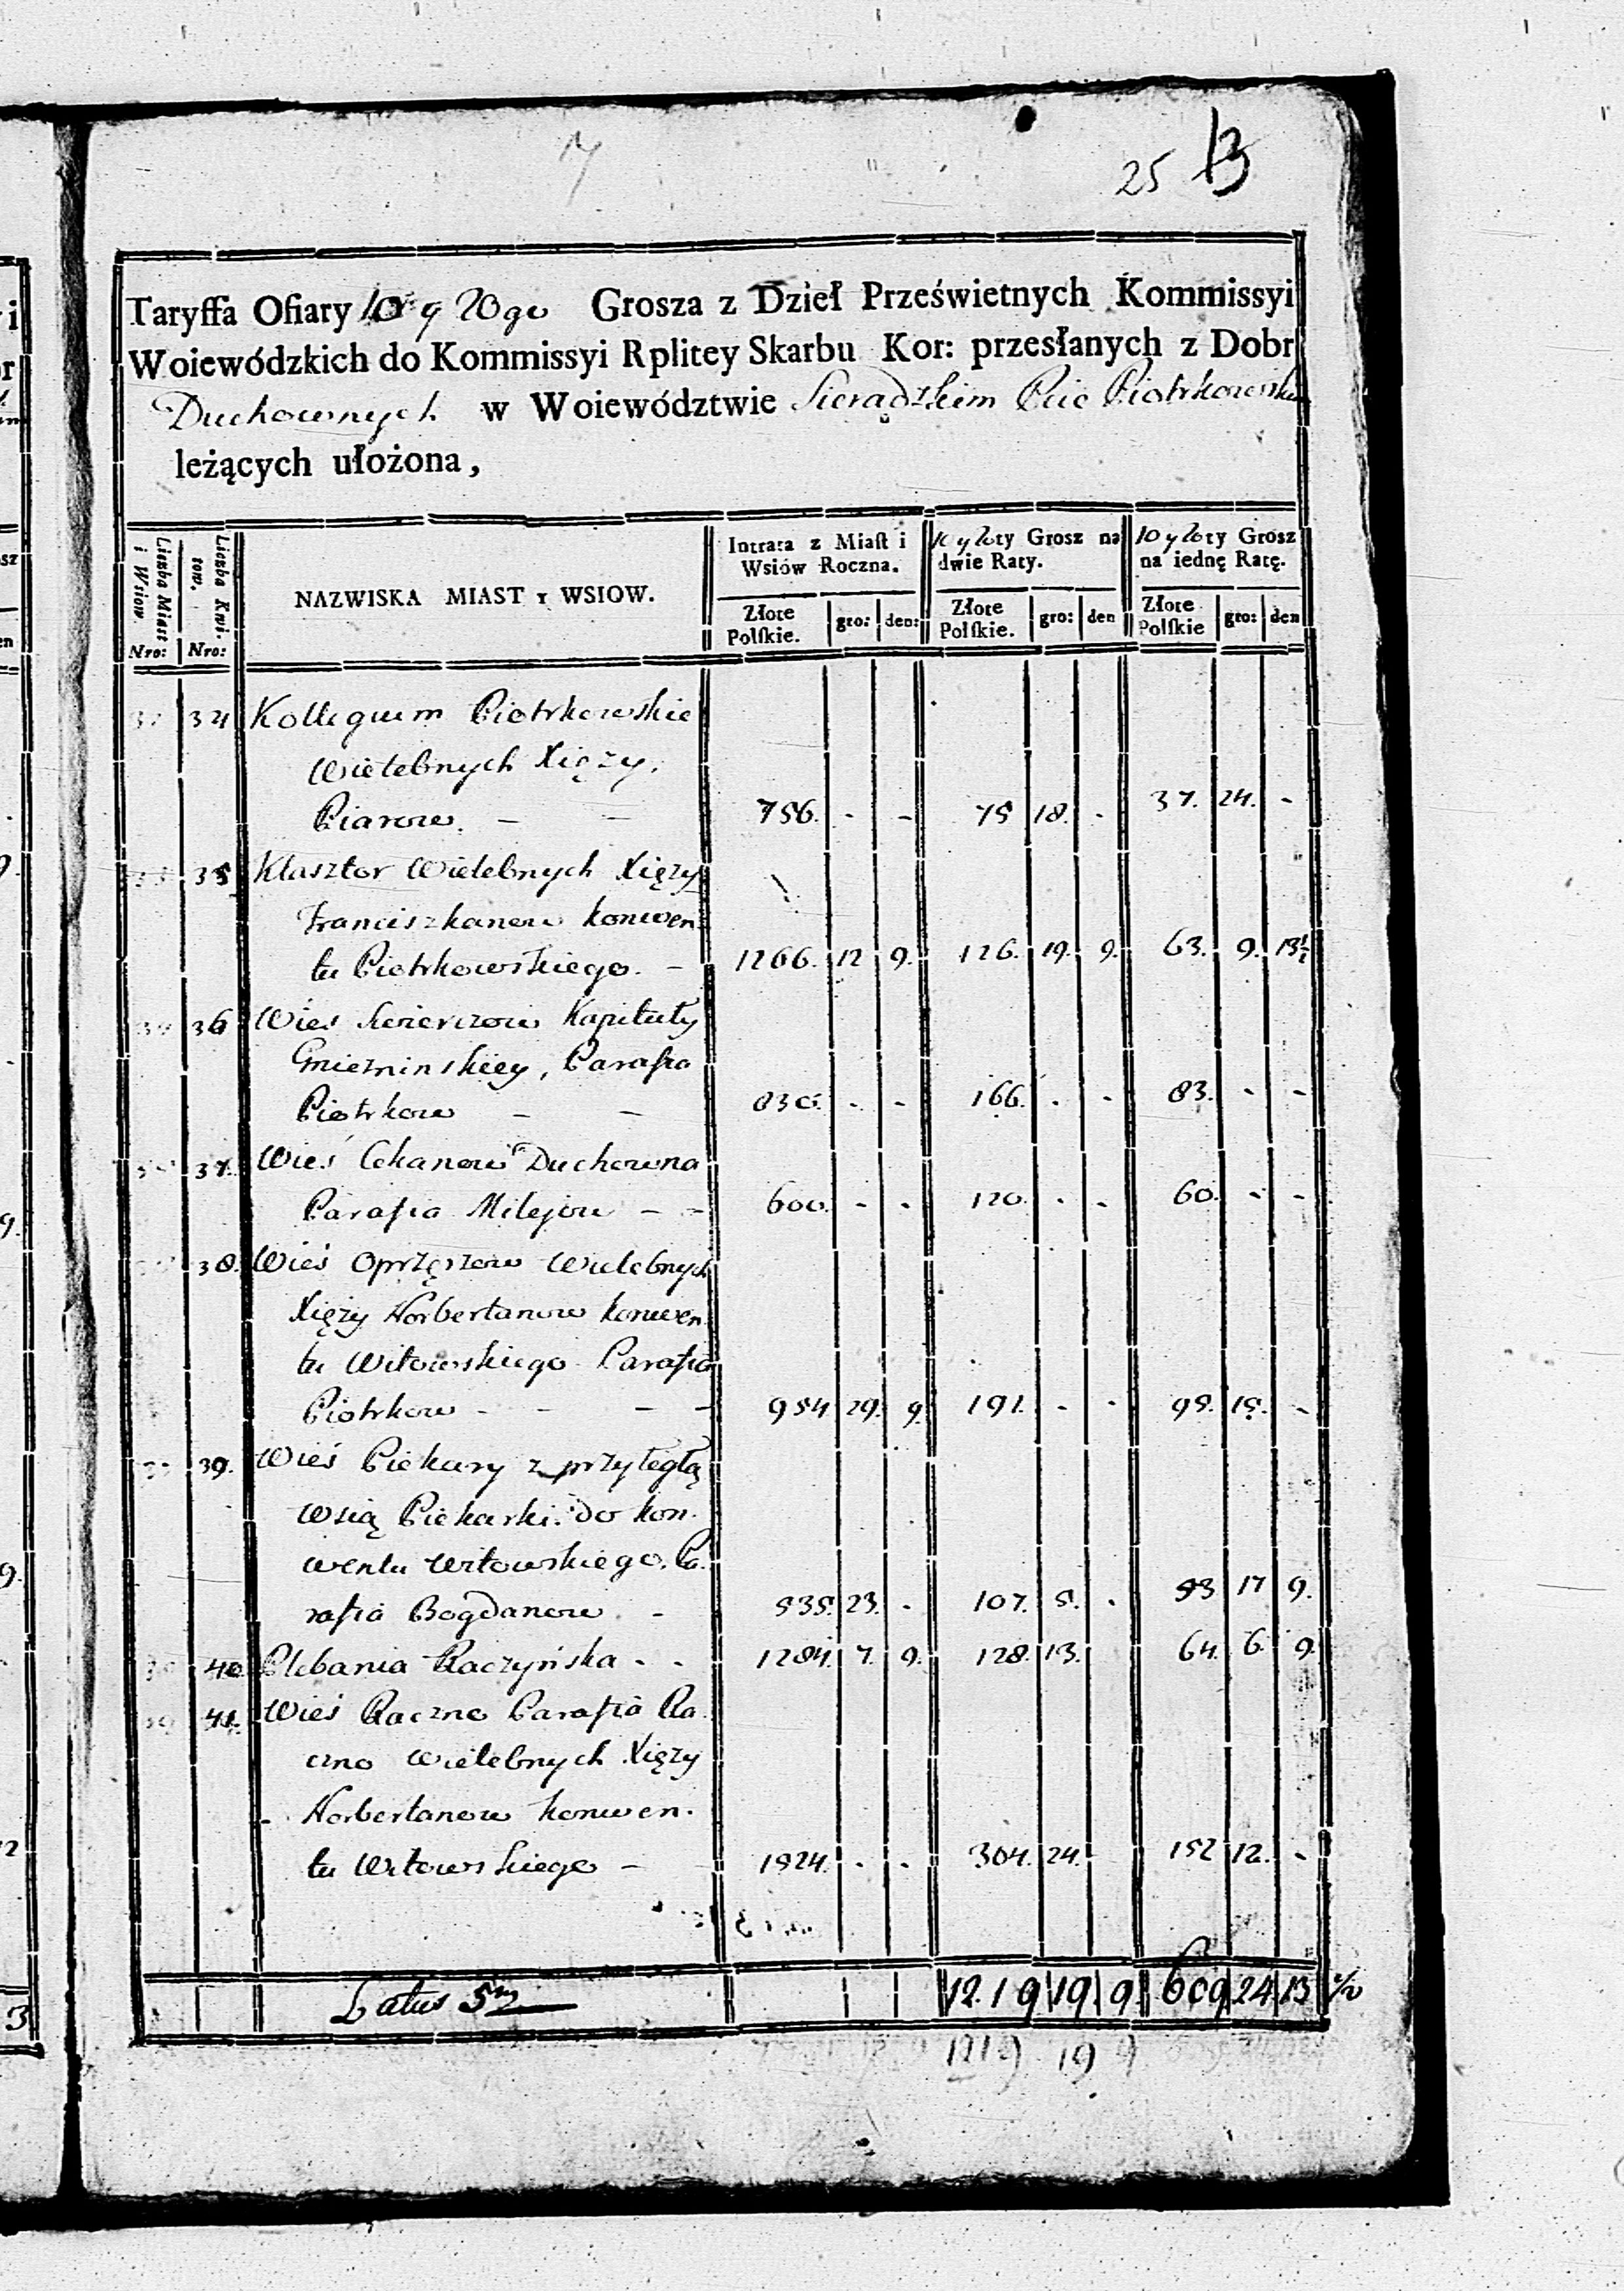 25 13
Taryffa Ofiary 10 y 20go Grosza z Dzieł Prześwietnych Kommissyi
Woiewódzkich do Kommissyi Rplitey Skarbu Kor: przesłanych z Dobr
Duchownych w Woiewództwie Sieradzkim Pcie Piotrkowskim
leżących ułożona,
Liczba Miast i Wsiow. Nro: Liczba Kwi-tow. Nro: NAZWISKA MIAST y WSIOW. Intrata z Miast i Wsiów Roczna. 10 y 20ty Grosz na dwie Raty. 10 y 20ty Grosz na iednę Ratę.
Złote Polskie. gro: den: Złote Polskie. gro: den Złote Polskie gro: den
34 Kollegium Piotrkowskie
Wielebnych Xięży
Piarow. — — 756. - - 75 18. - 37. 24. -
35 Klasztor Wielebnych Xięży
Franciszkanow konwen
tu Piotrkowskiego. — 1266. 12 9. 126. 19. 9. 63. 9. 13½
36 Wies Kapituły
Gniezninskiey, Parafia
Piotrkow — — 830. - - 166. - - 83. - -
37. Wieś Cekanow Duchowna
Parafia Milejow — — 600. - - 120. - - 60. - -
38. Wieś Oprzęzow Wielebnych
Xięży Norbertanow konwen
tu Witowskiego Parafia
Piotrkow - - — — 954 29. 9. 191. - - 95. 15. -
39. Wieś Piekary z przyległą
wsią Piekarki do kon.
wentu Witowskiego. Pa.
rafia Bogdanow. - 535. 23. - 107. 5. - 53 17 9.
40. Plebania Raczyńska - - 1284. 7. 9. 128. 13. 64. 6 9.
41. Wieś Raczno Parafia Ra.
czno Wielebnych Xięży
Norbertanow konwen.
tu Witowskiego — 1524. - - 304. 24. 152 12. -
Latus 5m 1219 19 9 609 24 13 ½
1219 19 9